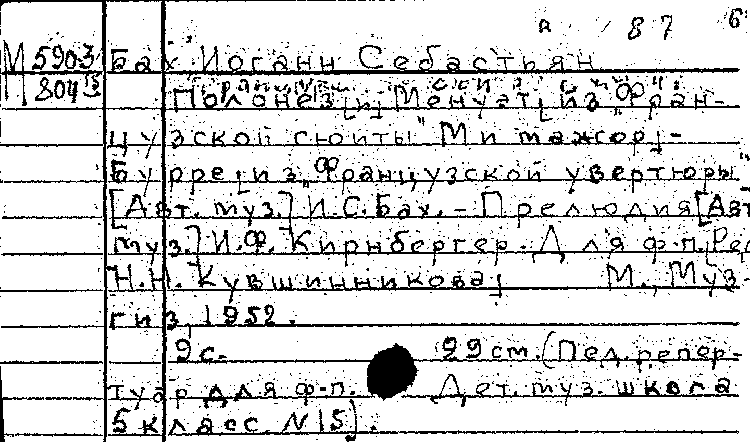 а 87 6
М 5903 Бах Иоганн Себастьян
П 804
Полонез[и] Менуэт[из "Фран-
цузской сюиты" Ми мажор]-
Бурре[из "Французской увертюры"
[Авт. муз.] И.С.Бах.-Прелюдия[Авт
муз.] И.Ф. Кирнбергер. Для ф-п.[Ред
Н.Н. Кувшинникова] М., Муз-
гиз, 1952.
9с. 29см.(Пед.репер-
туар для ф-п. Дет. муз. школа
5 класс. N 15).